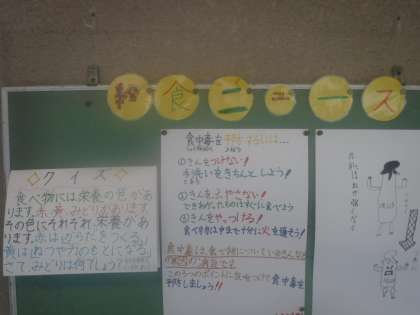 食ニュース
◇クイズ◇
食べ物には栄養の色があ
ります。赤、黄、みどりがあります
その色にそれぞれ、栄養があ
ります。赤は「からだをつくる」
黄は「ねつや力のもとになる」
さて、みどりは何でしょう？
食中毒を予防するには…
①きんをつけない！
手洗いをきちんとしよう！
②きんをふやさない！
できあがったものはすぐに食べよう
③きんをやっつける！
食べものは中まで十分に火を通そう！
食中毒は、食べ物についている
この3つのポイントに気をつけて食中毒を
予防しましょう!!